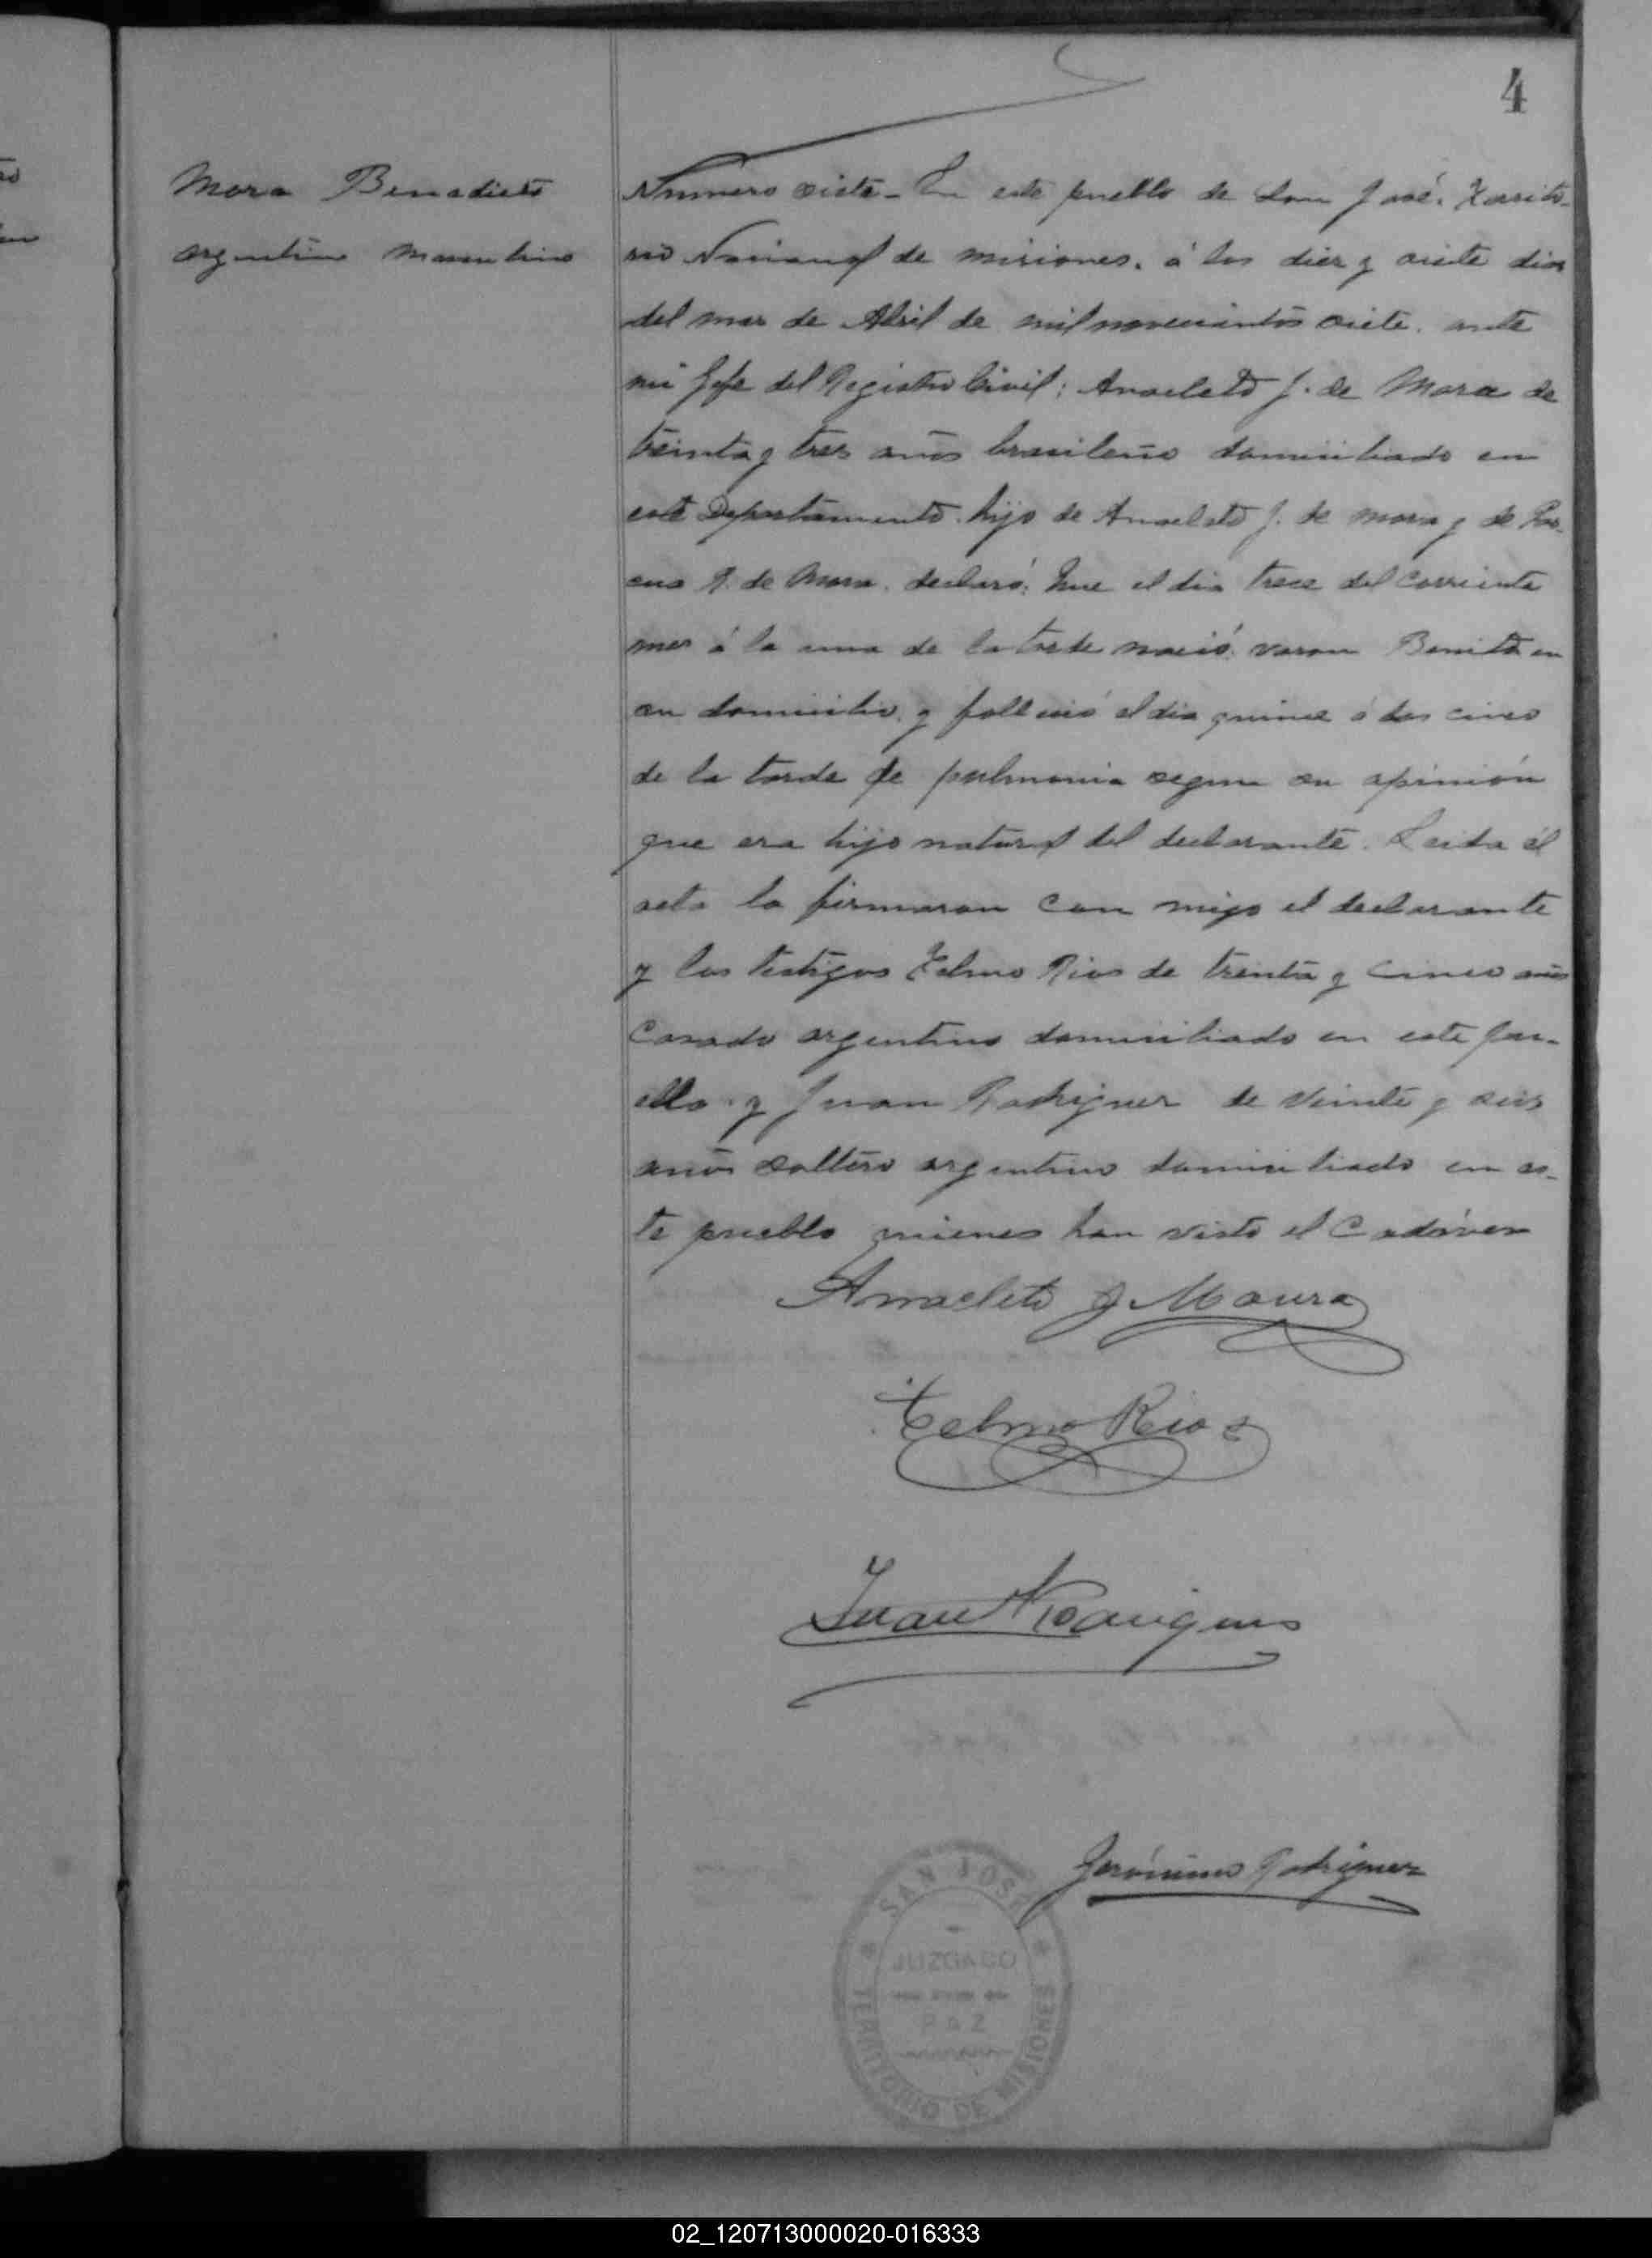 4
Mora Benedicto
argentino masculino
Numero siete - En este pueblo de San José, Territo-
rio Nacional de misiones, á los diez y siete dias
del mes de Abril de mil novecientos siete, ante
mi Jefe del Registro Civil: Anacleto J. de Mora de
treinta y tres años brasileño domiciliado en
este Departamento, hijo de Anacleto J. de mora y de
de Mora, declaró: Que el dia trece del corriente
mes á la una de la tarde nació varon Benito en
su domicilio, y falleció el dia quince á las cinco
de la tarde de pulmonia segun su opinión
que era hijo natural del declarante. Leida el
acta la firmaron con migo el declarante
y los testigos Telmo Rios de treinta y cinco años
Casado argentino domiciliado en este
y Juan Rodriguez de veinte y seis
años soltero argentino domiciliado en es-
te pueblo quienes han visto el Cadáver
Anacleto J Moura
Telmo Rios
Juan Rodrigues
Jerónimo Rodriguez
SAN JOSÉ
JUZGADO
DE
PAZ
TERRITORIO DE MISIONES
02_120713000020-016333